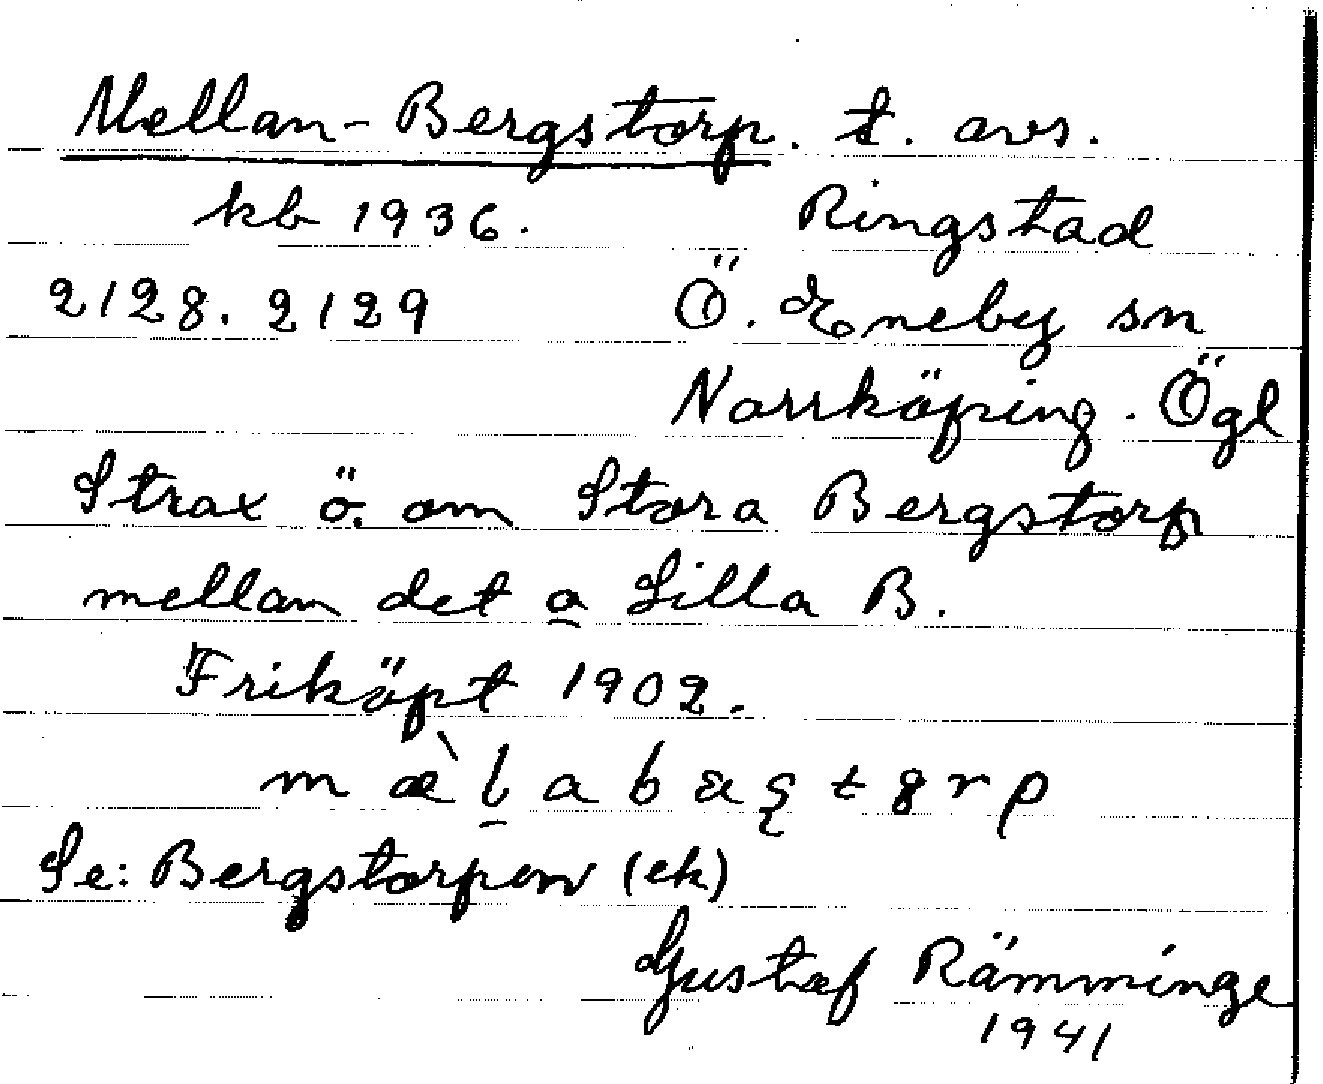 Mellan-Bergstorp. t. avs.
kb 1936. Ringstad
2128. 2129 Ö. Eneby sn
Norrköping. Ögl
Strax ö. om Stora Bergstorp
mellan det o Lilla B.
Friköpt 1902.
m æ̀ l a b
Se: Bergstorpen (ek)
Gustaf Rämminge
1941